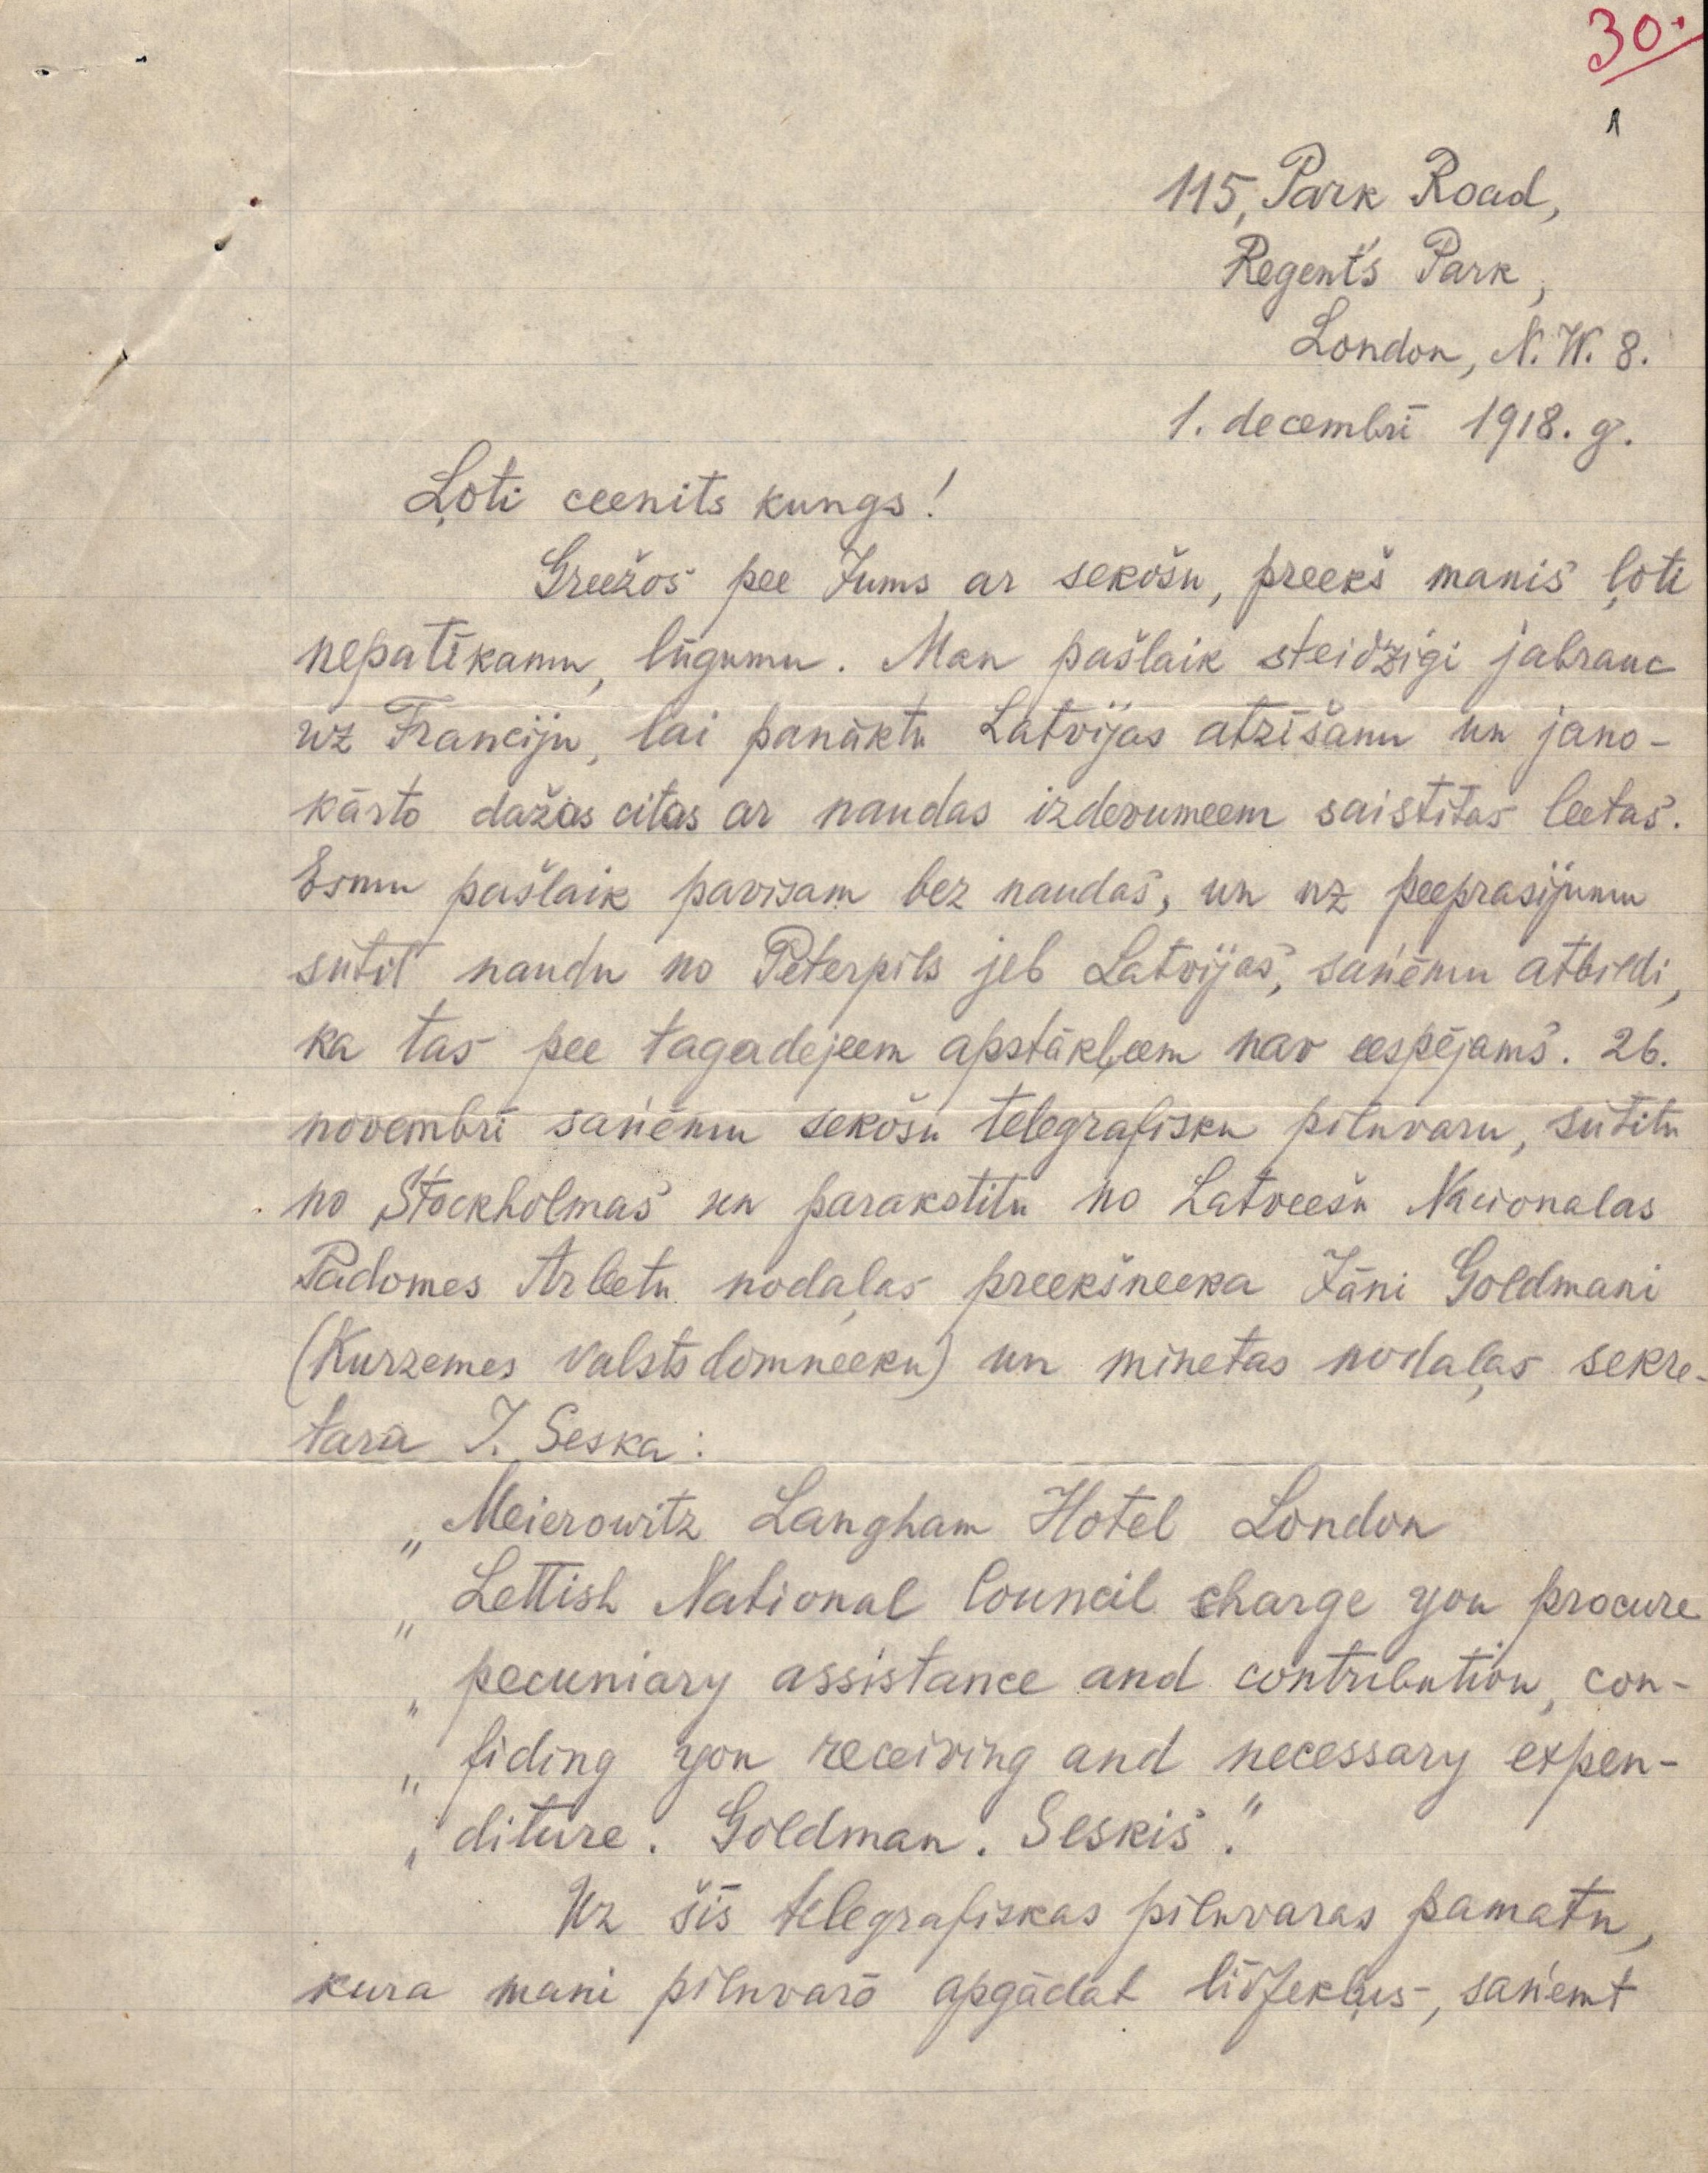 30.
1
115, Park Road,
Regent's Park,
London, N.W. 8.
1. decembrī 1918. g.
Ļoti ceenits kungs!
Greežos pee Jums ar sekošu, preekš manis ļoti
nepatīkamu, lūgumu. Man pašlaik steidzigi jabrauc
uz Franciju, lai panāktu Latvijas atzīšanu un jano-
kārto dažas citas ar naudas izdevumeem saistitas leetas.
Esmu pašlaik pavisam bez naudas, un uz peeprasijumu
sūtit naudu no Peterpils jeb Latvijas, saņēmu atbildi,
ka tas pee tagadejeem apstākļeem nav eespējams. 26.
novembrī saņēmu sekošu telegrafisku pilnvaru, sūtitu
no Stockholmas un parakstitu no Latveešu Nacionalas
Padomes Arleetu nodaļas preekšneeka Jāni Goldmani
(Kurzemes valstsdomneeku) un minetas nodaļas sekre-
tara J. Seska:
„ Meierowitz Langham Hotel London
„ Lettish National Council charge you procure
„ pecuniary assistance and contribution, con-
„ fiding you receiving and necessary expen-
„ diture. Goldman. Seskis."
Uz šīs telegrafiskas pilnvaras pamatu,
kura mani pilnvarō apgādat līdzekļus, saņemt